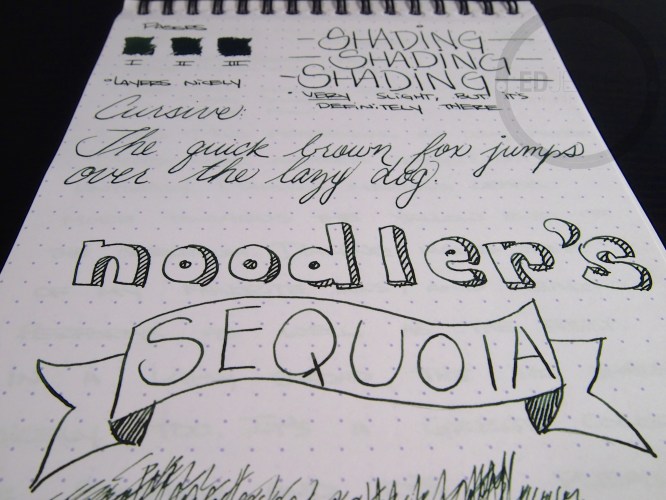 PASSES
I II III
•LAYERS NICELY
SHADING
SHADING
SHADING
• VERY SLIGHT, BUT IT'S
DEFINITELY THERE
Cursive:
The quick brown fox jumps
over the lazy dog.
noodler's
SEQUOIA